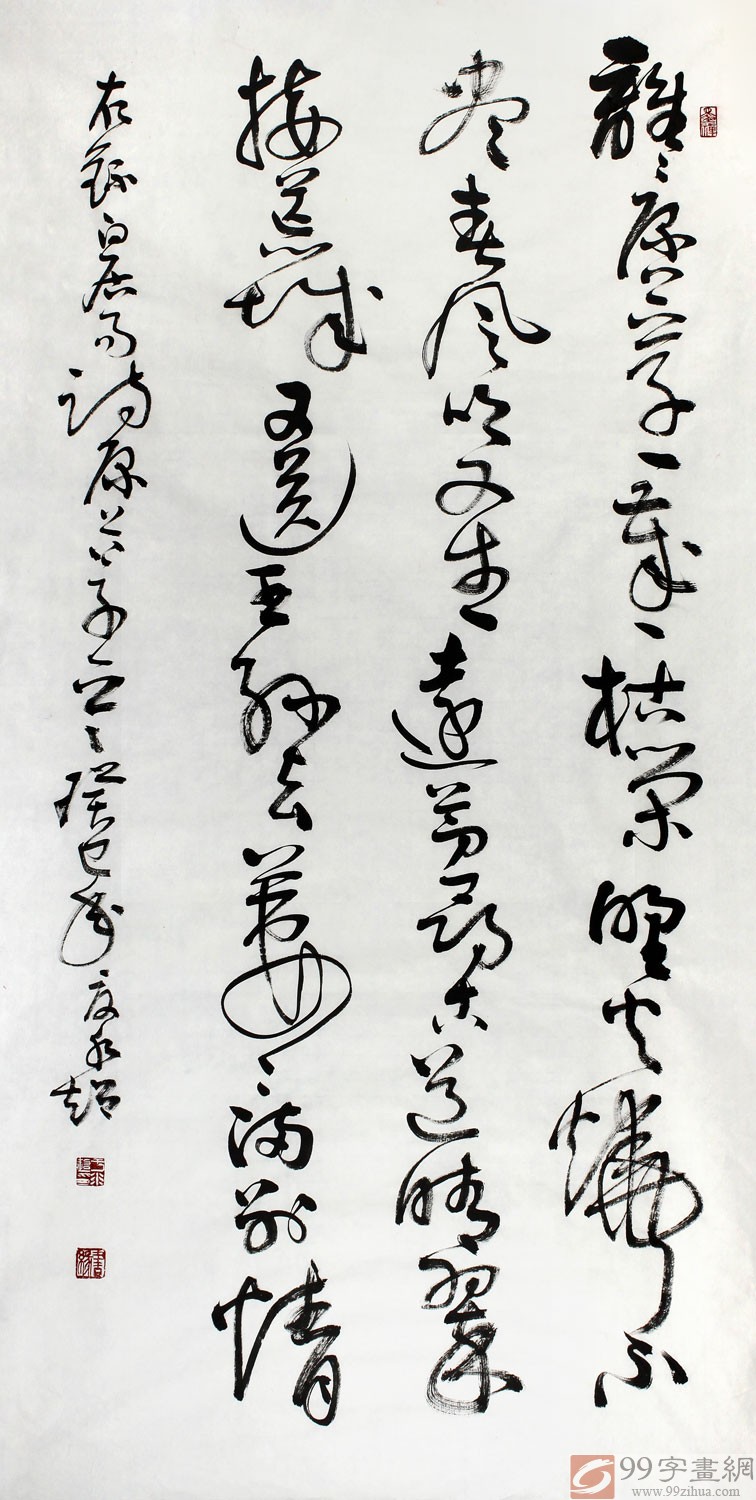 離〻原上草一歲一枯榮野火燒不
盡春風吹又生遠芳侵古道晴翠
接荒城又送王孫去萋〻滿別情
右錄白居易詩原上草 癸巳年 永超
99字畫網
www.99zihua.com